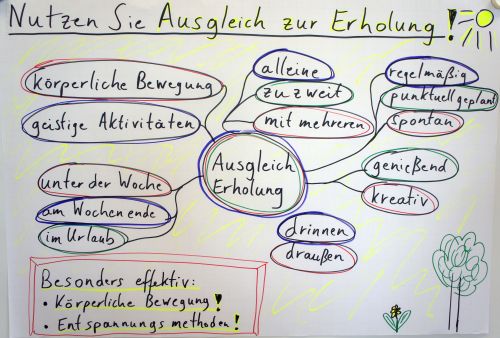 Nutzen Sie Ausgleich zur Erholung!
körperliche Bewegung
geistige Aktivitäten
alleine
zu zweit
mit mehreren
regelmäßig
punktuell geplant
spontan
Ausgleich
Erholung
genießend
kreativ
unter der Woche
am Wochenende
im Urlaub
drinnen
draußen
Besonders effektiv:
• Körperliche Bewegung!
• Entspannungsmethoden!